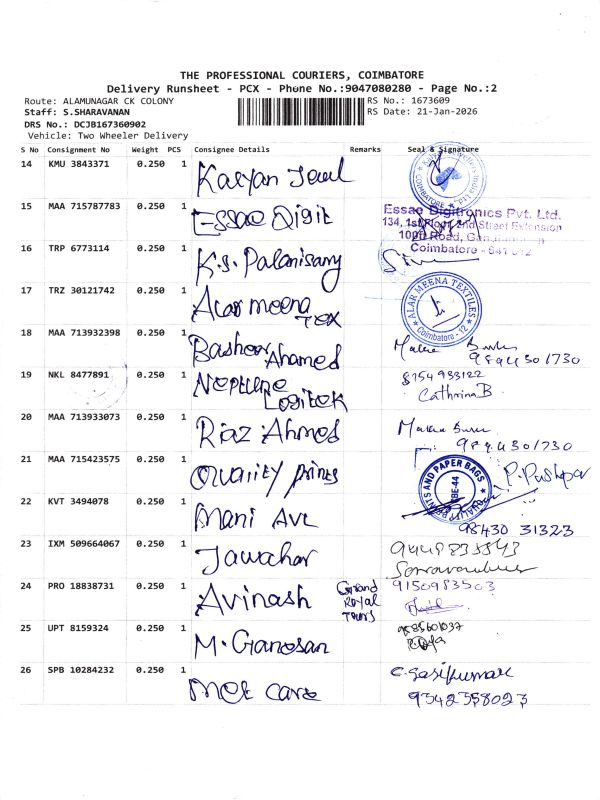 THE PROFESSIONAL COURIERS, COIMBATORE
Delivery Runsheet - PCX - Phone No.:9047080280 - Page No.:2
Route: ALAMUNAGAR CK COLONY
RS No.: 1673609
Staff: S.SHARAVANAN
RS Date: 21-Jan-2026
DRS No.: DCJB167360902
Vehicle: Two Wheeler Delivery
S No Consignment No Weight PCS Consignee Details Remarks Seal & Signature
14 KMU 3843371 0.250 1 Kalyan Jewel
COIMBATORE
15 MAA 715787783 0.250 1 Essae Digit
Essae Digitronics Pvt. Ltd.
134, 1st Floor, 2nd Street Extension
100ft Road,
Coimbatore - 641 012
16 TRP 6773114 0.250 1 K.S. Palanisamy
17 TRZ 30121742 0.250 1 Alar meena
Tex
ALAR MEENA TEXTILES
Coimbatore - 12
18 MAA 713932398 0.250 1 Basheer
Ahamed
19 NKL 8477891 0.250 1 Neptune
Logitek
8754933122
Cathrina B
20 MAA 713933073 0.250 1 Riaz Ahmed
21 MAA 715423575 0.250 1 Quality prints
QUALITY PRINTS AND PAPER BAGS
CBE-44
P. Pushpa
22 KVT 3494078 0.250 1 Mani Ave
98430 31323
23 IXM 509664067 0.250 1 Jawahar
24 PRO 18838731 0.250 1 Avinash
Grand
Royal
Tours
9150983503
25 UPT 8159324 0.250 1 M. Ganesan
26 SPB 10284232 0.250 1 Met care
C. Sasikumar
9342358023